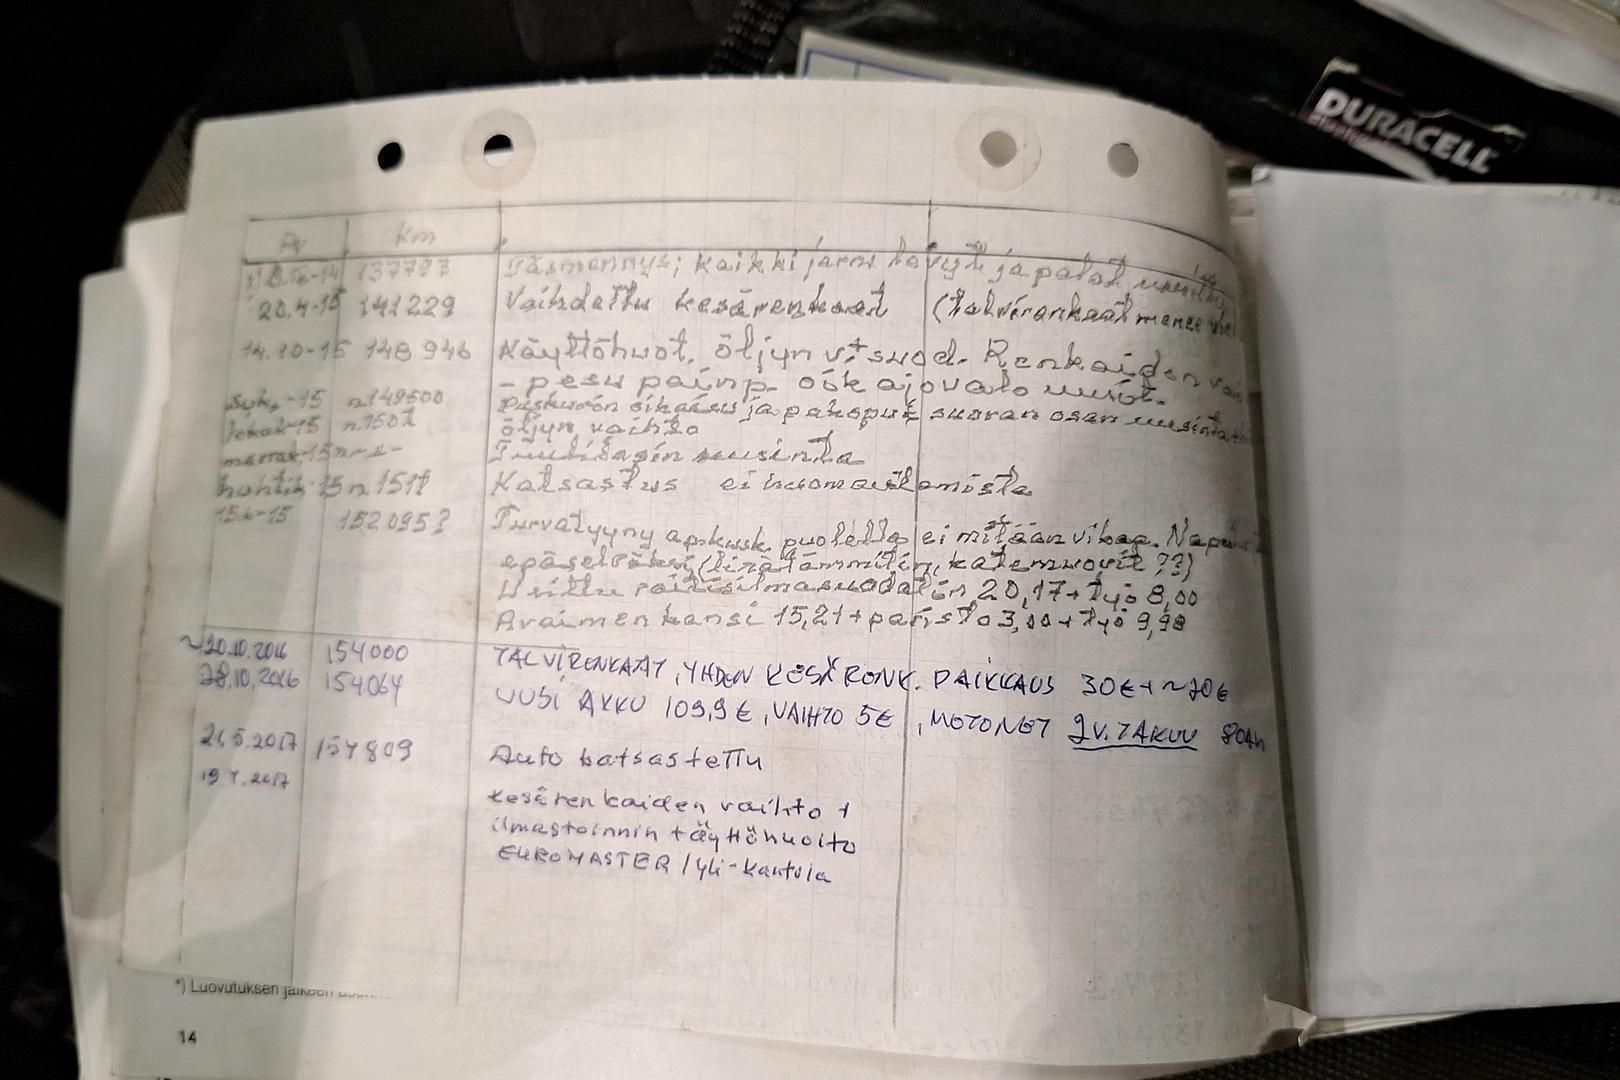 DURACELL
Pv Km
137793 Täsmennys; kaikki jarru levyt ja palat uusittu
20.4-15 141229 Vaihdettu kesärenkaat (talvirenkaat menee viel
14.10-15 148 946 Käyttöhuot. öljyn v. + suod. Renkaiden vai
- pesu painp. oik ajovalo uusit.
syk.-15 n.149500
öljyn vaihto
marras-15 n. -"- Tuulilasin uusinta
huhtik-15 n.151t Katsastus ei huomauttamista
15.6-15 152.095? Turvatyyny apkusk. puolella ei mitään vikaa.
Uusittu raitisilmasuodatin 20,17 + työ 8,00
Avaimen kansi 15,21 + paristo 3,00 + työ 9,90
~20.10.2016 154000 TALVIRENKAAT, YHDEN KESÄRENK. PAIKKAUS 30€ + ~70€
28.10.2016 154064 UUSI AKKU 109,9 €, VAIHTO 5€, MOTONET 2V. TAKUU 80Ah
21.5.2017 157809 Auto katsastettu
19.7.2017
Kesärenkaiden vaihto +
ilmastoinnin täyttöhuolto
EUROMASTER / yli-Kantola
*) Luovutuksen jälkeen
14